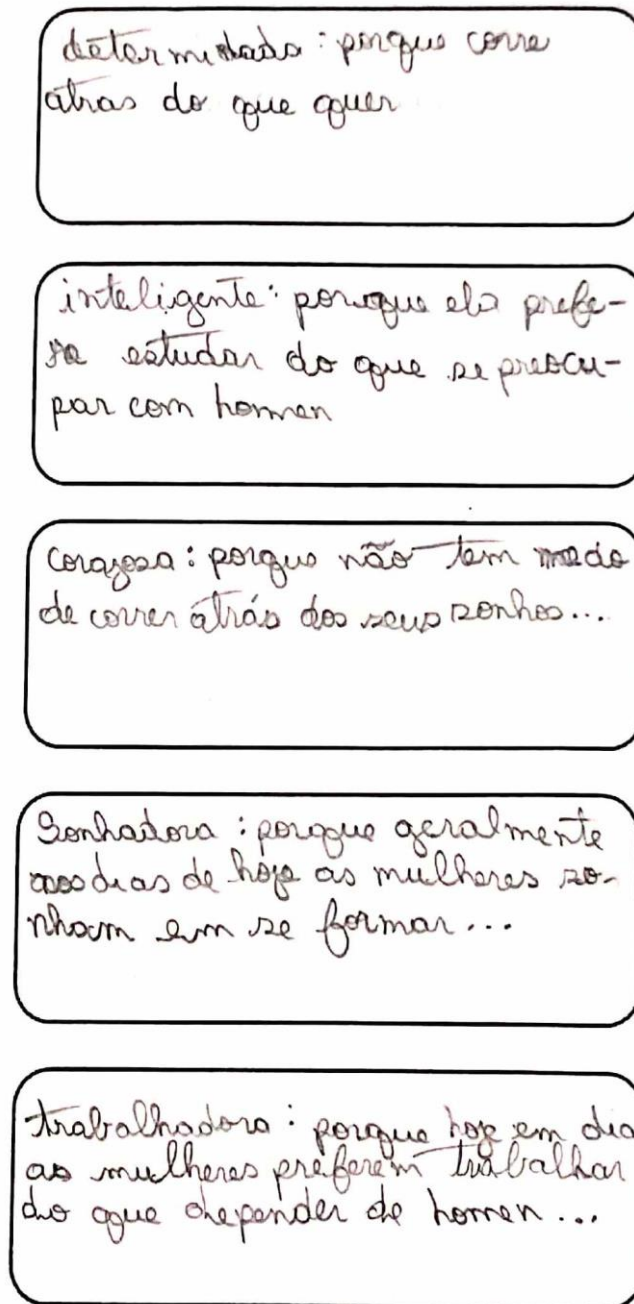 determinada: porque corre
atras do que quer
inteligente: porque ela prefe-
re estudar do que se preocu-
par com homen
corajosa: porque não tem medo
de correr atrás dos seus sonhos...
Sonhadora: porque geralmente
nos dias de hoje as mulheres so-
nham em se formar...
trabalhadora: porque hoje em dia
as mulheres preferem trabalhar
do que depender de homen...